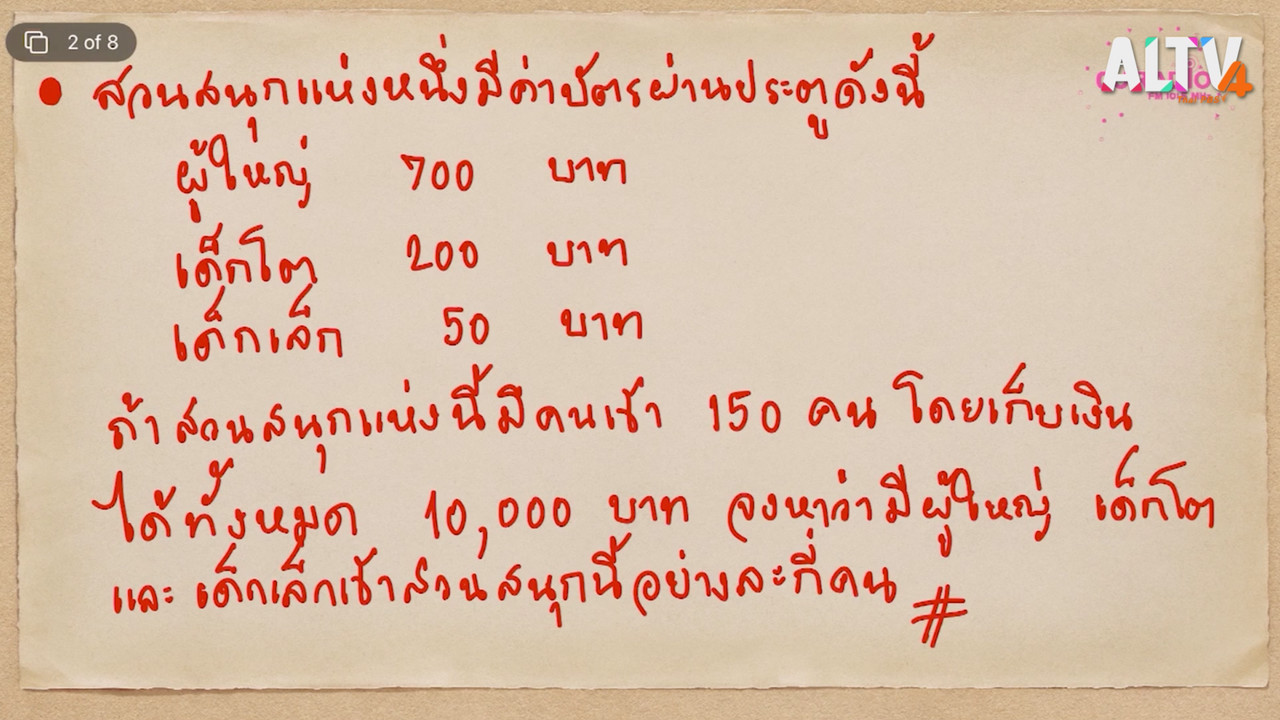 2 of 8
ALTV4
สวนสนุกแห่งหนึ่งมีค่าบัตรผ่านประตูดังนี้
ผู้ใหญ่ 700 บาท
เด็กโต 200 บาท
เด็กเล็ก 50 บาท
ถ้าสวนสนุกแห่งนี้มีคนเข้า 150 คน โดยเก็บเงิน
ได้ทั้งหมด 10,000 บาท จงหาว่ามีผู้ใหญ่ เด็กโต
และ เด็กเล็กเข้าสวนสนุกนี้อย่างละกี่คน #